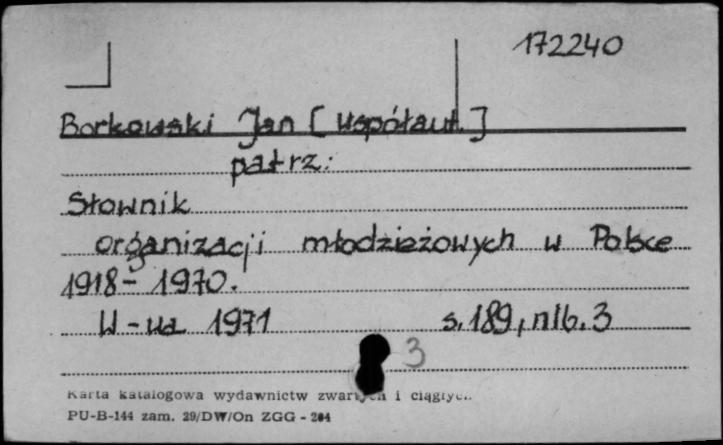 172240
Borkowski Jan [współaut.]
patrz:
Słownik
organizacji młodzieżowych w Polsce
1918-1970.
W-wa 1971 s. 189, nlb. 3
3
Karta katalogowa wydawnictw zwartych i ciągłych
PU-B-144 zam. 29/DW/On ZGG - 204